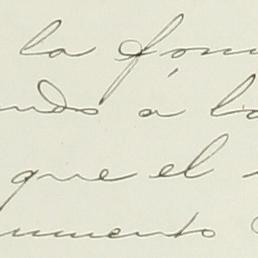 la fom
ando á la
que el
umento